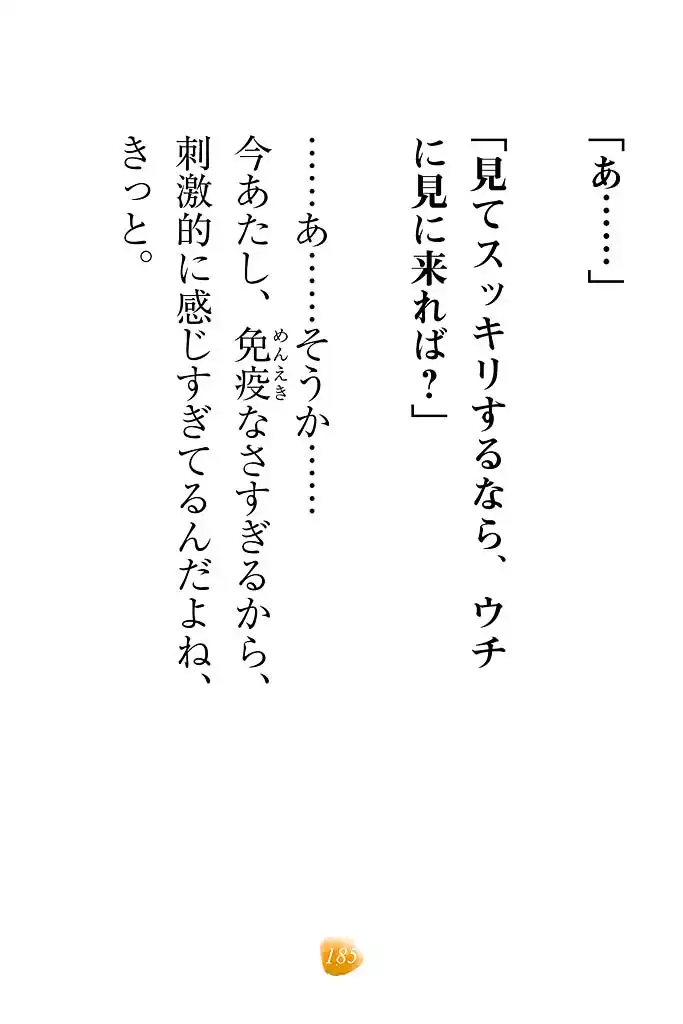 「あ……」
「見てスッキリするなら、ウチ
に見に来れば？」
……あ……そうか……
今あたし、免疫なさすぎるから、
めんえき
刺激的に感じすぎてるんだよね、
きっと。
185